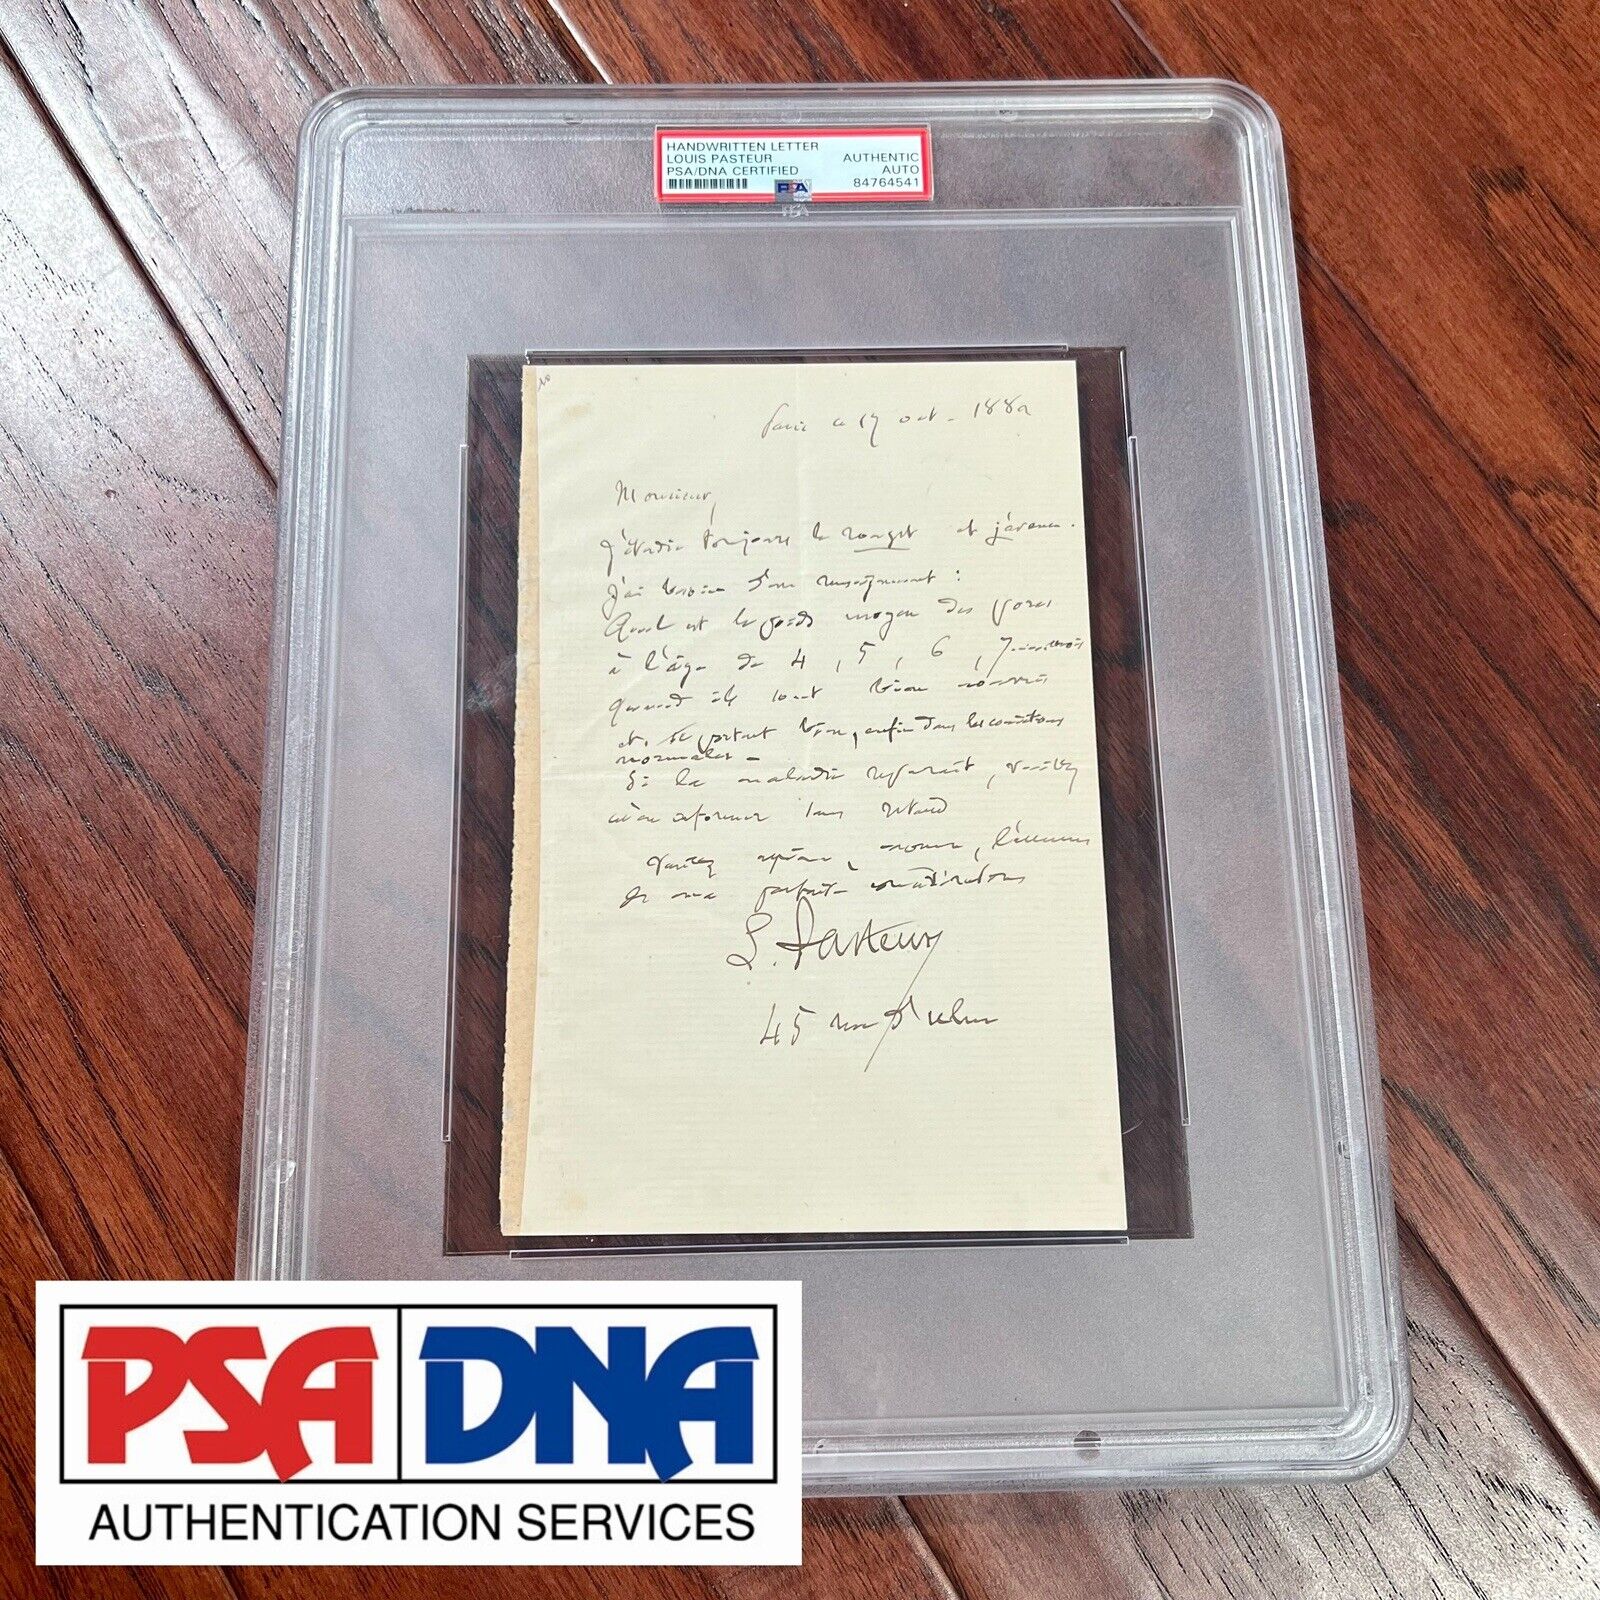 HANDWRITTEN LETTER
LOUIS PASTEUR
PSA/DNA CERTIFIED
AUTHENTIC
AUTO
84764541
PSA
Paris ce 17 oct. 1882
Monsieur,
J'étudie toujours le rouget et j'avance.
J'ai besoin d'un renseignement :
Quel est le poids moyen des porcs
à l'âge de 4, 5, 6, 7 mois
quand ils sont bien nourris
et se portent bien, enfin dans les conditions
normales -
Si la maladie reparait, veuillez
m'en informer sans retard
Veuillez agréer, monsieur, l'assurance
de ma parfaite considération
L. Pasteur
45 rue d'Ulm
PSA DNA
AUTHENTICATION SERVICES